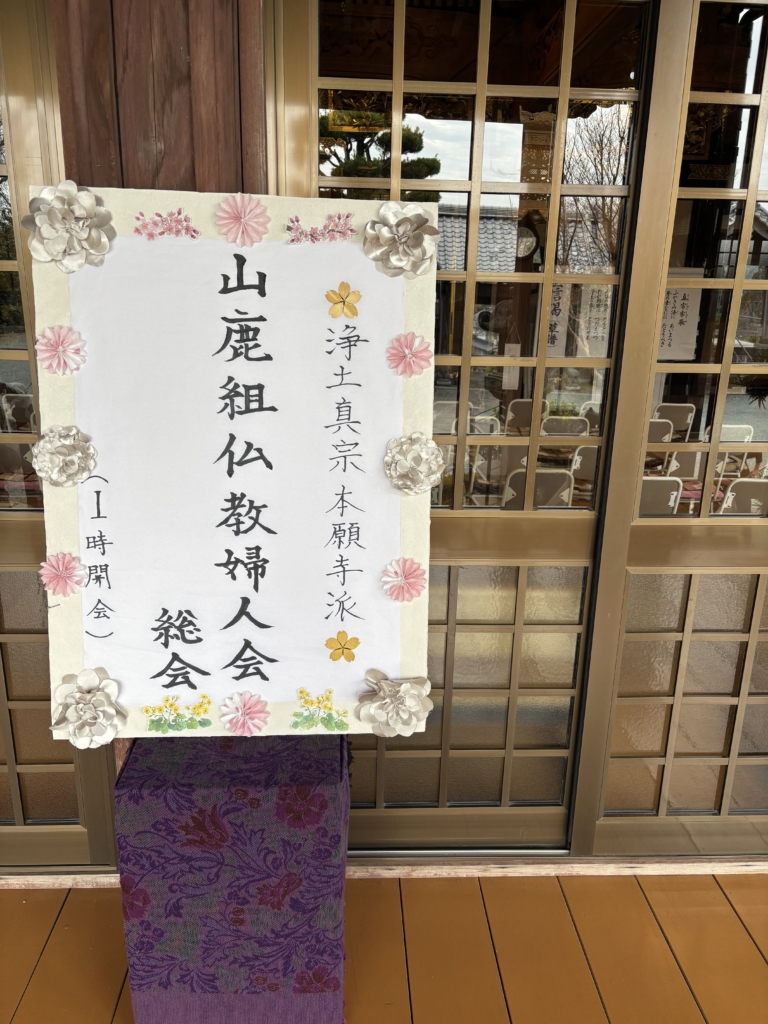 浄土真宗本願寺派
山鹿組仏教婦人会
総会
(1時開会)